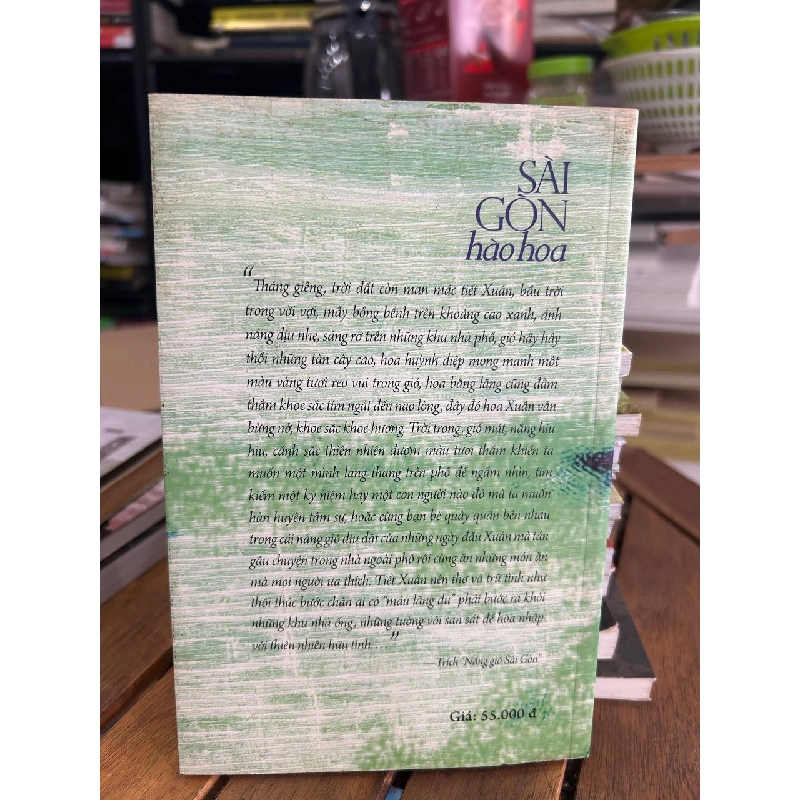 SÀI
GÒN
hào hoa
“Tháng giêng, trời đất còn man mác tiết Xuân, bầu trời
trong vời vợi, mây bồng bềnh trên khoảng cao xanh, ánh
nắng dịu nhẹ, sáng rỡ trên những khu nhà phố, gió hây hẩy
thổi những tàn cây cao, hoa huỳnh điệp mong manh một
màu vàng tươi reo vui trong gió, hoa bằng lăng cũng đằm
thắm khoe sắc tím ngát đến nao lòng, đây đó hoa Xuân vẫn
bừng nở, khoe sắc khoe hương. Trời trong, gió mát, nắng hiu
hiu, cảnh sắc thiên nhiên đượm màu tươi thắm khiến ta
muốn một mình lang thang trên phố để ngắm nhìn, tìm
kiếm một kỷ niệm hay một con người nào đó mà ta muốn
hàn huyên tâm sự, hoặc cùng bạn bè quây quần bên nhau
trong cái nắng gió dịu dặt của những ngày đầu Xuân mà tán
gẫu chuyện trong nhà ngoài phố rồi cùng ăn những món ăn
mà mọi người ưa thích. Tiết Xuân nên thơ và trữ tình như
thôi thúc bước chân ai có “máu lãng du” phải bước ra khỏi
những khu nhà ống, những tường vôi san sát để hòa nhập
với thiên nhiên hữu tình…”
—Trích “Nắng gió Sài Gòn”
Giá: 55.000 đ